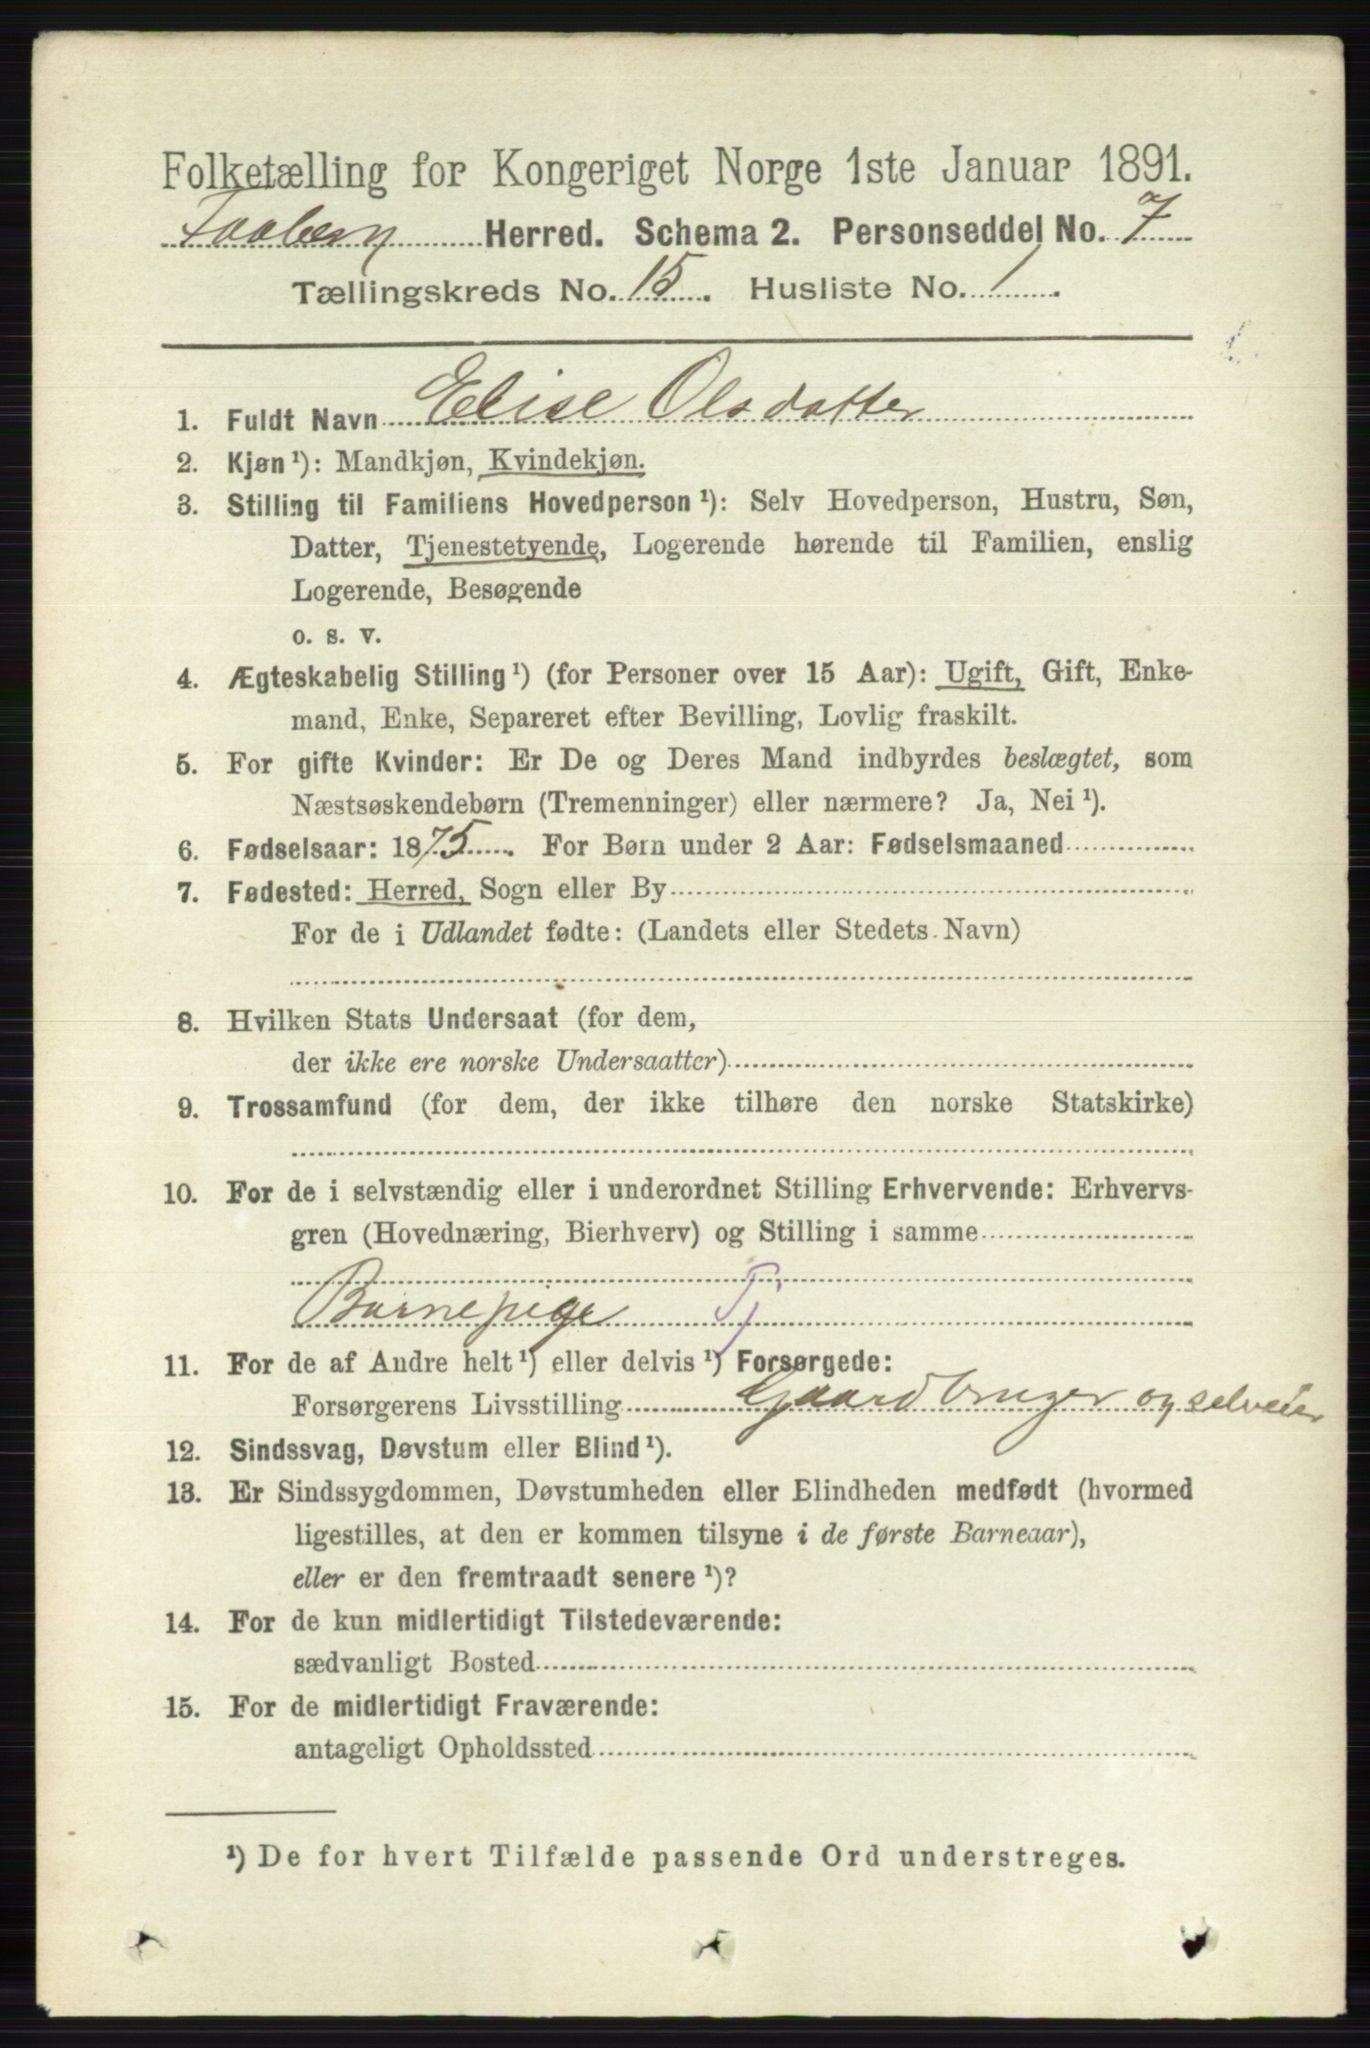 Folketælling for Kongeriget Norge 1ste Januar 1891.
Faaberg Herred. Schema 2. Personseddel No. 7
Tællingskreds No. 15. Husliste No. 1.
1. Fuldt Navn Elise Olsdatter
2. Kjøn¹): Mandkjøn, Kvindekjøn.
3. Stilling til Familiens Hovedperson¹): Selv Hovedperson, Hustru, Søn,
Datter, Tjenestetyende, Logerende hørende til Familien, enslig
Logerende, Besøgende
o. s. v.
4. Ægteskabelig Stilling¹) (for Personer over 15 Aar): Ugift, Gift, Enke-
mand, Enke, Separeret efter Bevilling, Lovlig fraskilt.
5. For gifte Kvinder: Er De og Deres Mand indbyrdes beslægtet, som
Næstsøskendebørn (Tremenninger) eller nærmere? Ja, Nei¹).
6. Fødselsaar: 1875. For Børn under 2 Aar: Fødselsmaaned
7. Fødested: Herred, Sogn eller By
For de i Udlandet fødte: (Landets eller Stedets Navn)
8. Hvilken Stats Undersaat (for dem,
der ikke ere norske Undersaatter)
9. Trossamfund (for dem, der ikke tilhøre den norske Statskirke)
10. For de i selvstændig eller i underordnet Stilling Erhvervende: Erhvervs-
gren (Hovednæring, Bierhverv) og Stilling i samme
Barnepige Tj
11. For de af Andre helt¹) eller delvis¹) Forsørgede:
Forsørgerens Livsstilling Gaardbruger og selveier
12. Sindssvag, Døvstum eller Blind¹).
13. Er Sindssygdommen, Døvstumheden eller Blindheden medfødt (hvormed
ligestilles, at den er kommen tilsyne i de første Barneaar),
eller er den fremtraadt senere¹)?
14. For de kun midlertidigt Tilstedeværende:
sædvanligt Bosted
15. For de midlertidigt Fraværende:
antageligt Opholdssted
¹) De for hvert Tilfælde passende Ord understreges.